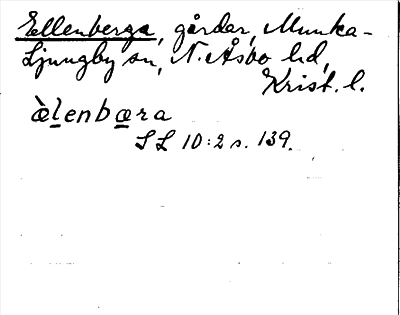 Ellenberga, gårdar, Munka-
Ljungby sn, N. Åsbo hd,
Krist. l.
àlenbæra
SL 10:2 s. 139.